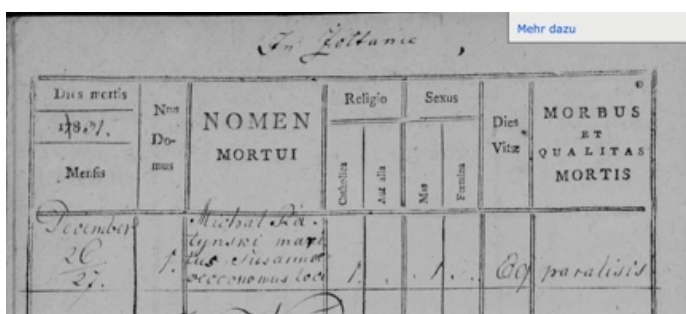 Mehr dazu
In Zoltance,
Dies mortis
178
Mensis
Nrus
Do-
mus
NOMEN
MORTUI
Religio
Catholica
Aut alia
Sexus
Mas
Fœmina
Dies
Vitæ
MORBUS
ET
QUALITAS
MORTIS
December
26
27.
1.
Michał
tynski mari
tus Susanna
oeconomus loci
1. .
1. .
69
paralisis